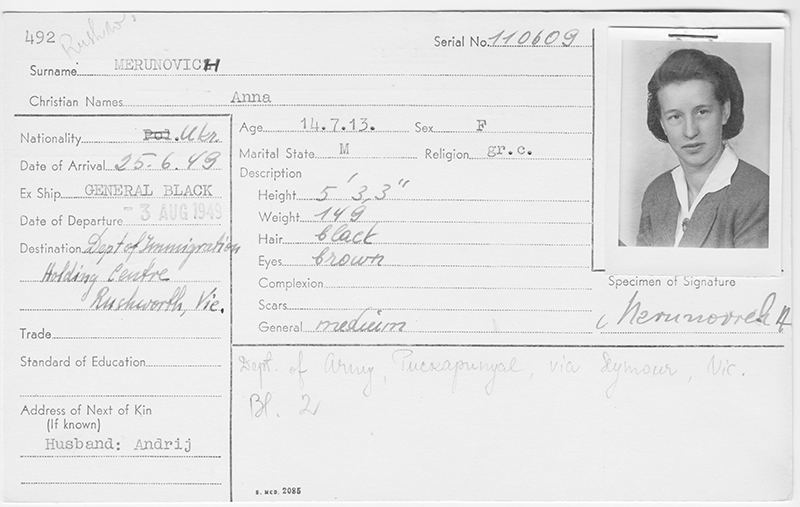 492 Rushw.
Serial No. 110609
Surname MERUNOVICH
Christian Names Anna
Nationality Pol. Ukr.
Date of Arrival 25.6.49
Ex Ship GENERAL BLACK
Date of Departure - 3 AUG 1949
Destination Dept of Immigration
Holding Centre
Rushworth, Vic.
Trade
Standard of Education
Address of Next of Kin
(If known)
Husband: Andrij
Age 14.7.13. Sex F
Marital State M Religion gr.c.
Description
Height 5' 3,3"
Weight 149
Hair black
Eyes brown
Complexion
Scars
General medium
Specimen of Signature
Dept. of Army, Puckapunyal, via Seymour, Vic.
Bl. 2
S. MCD. 2085